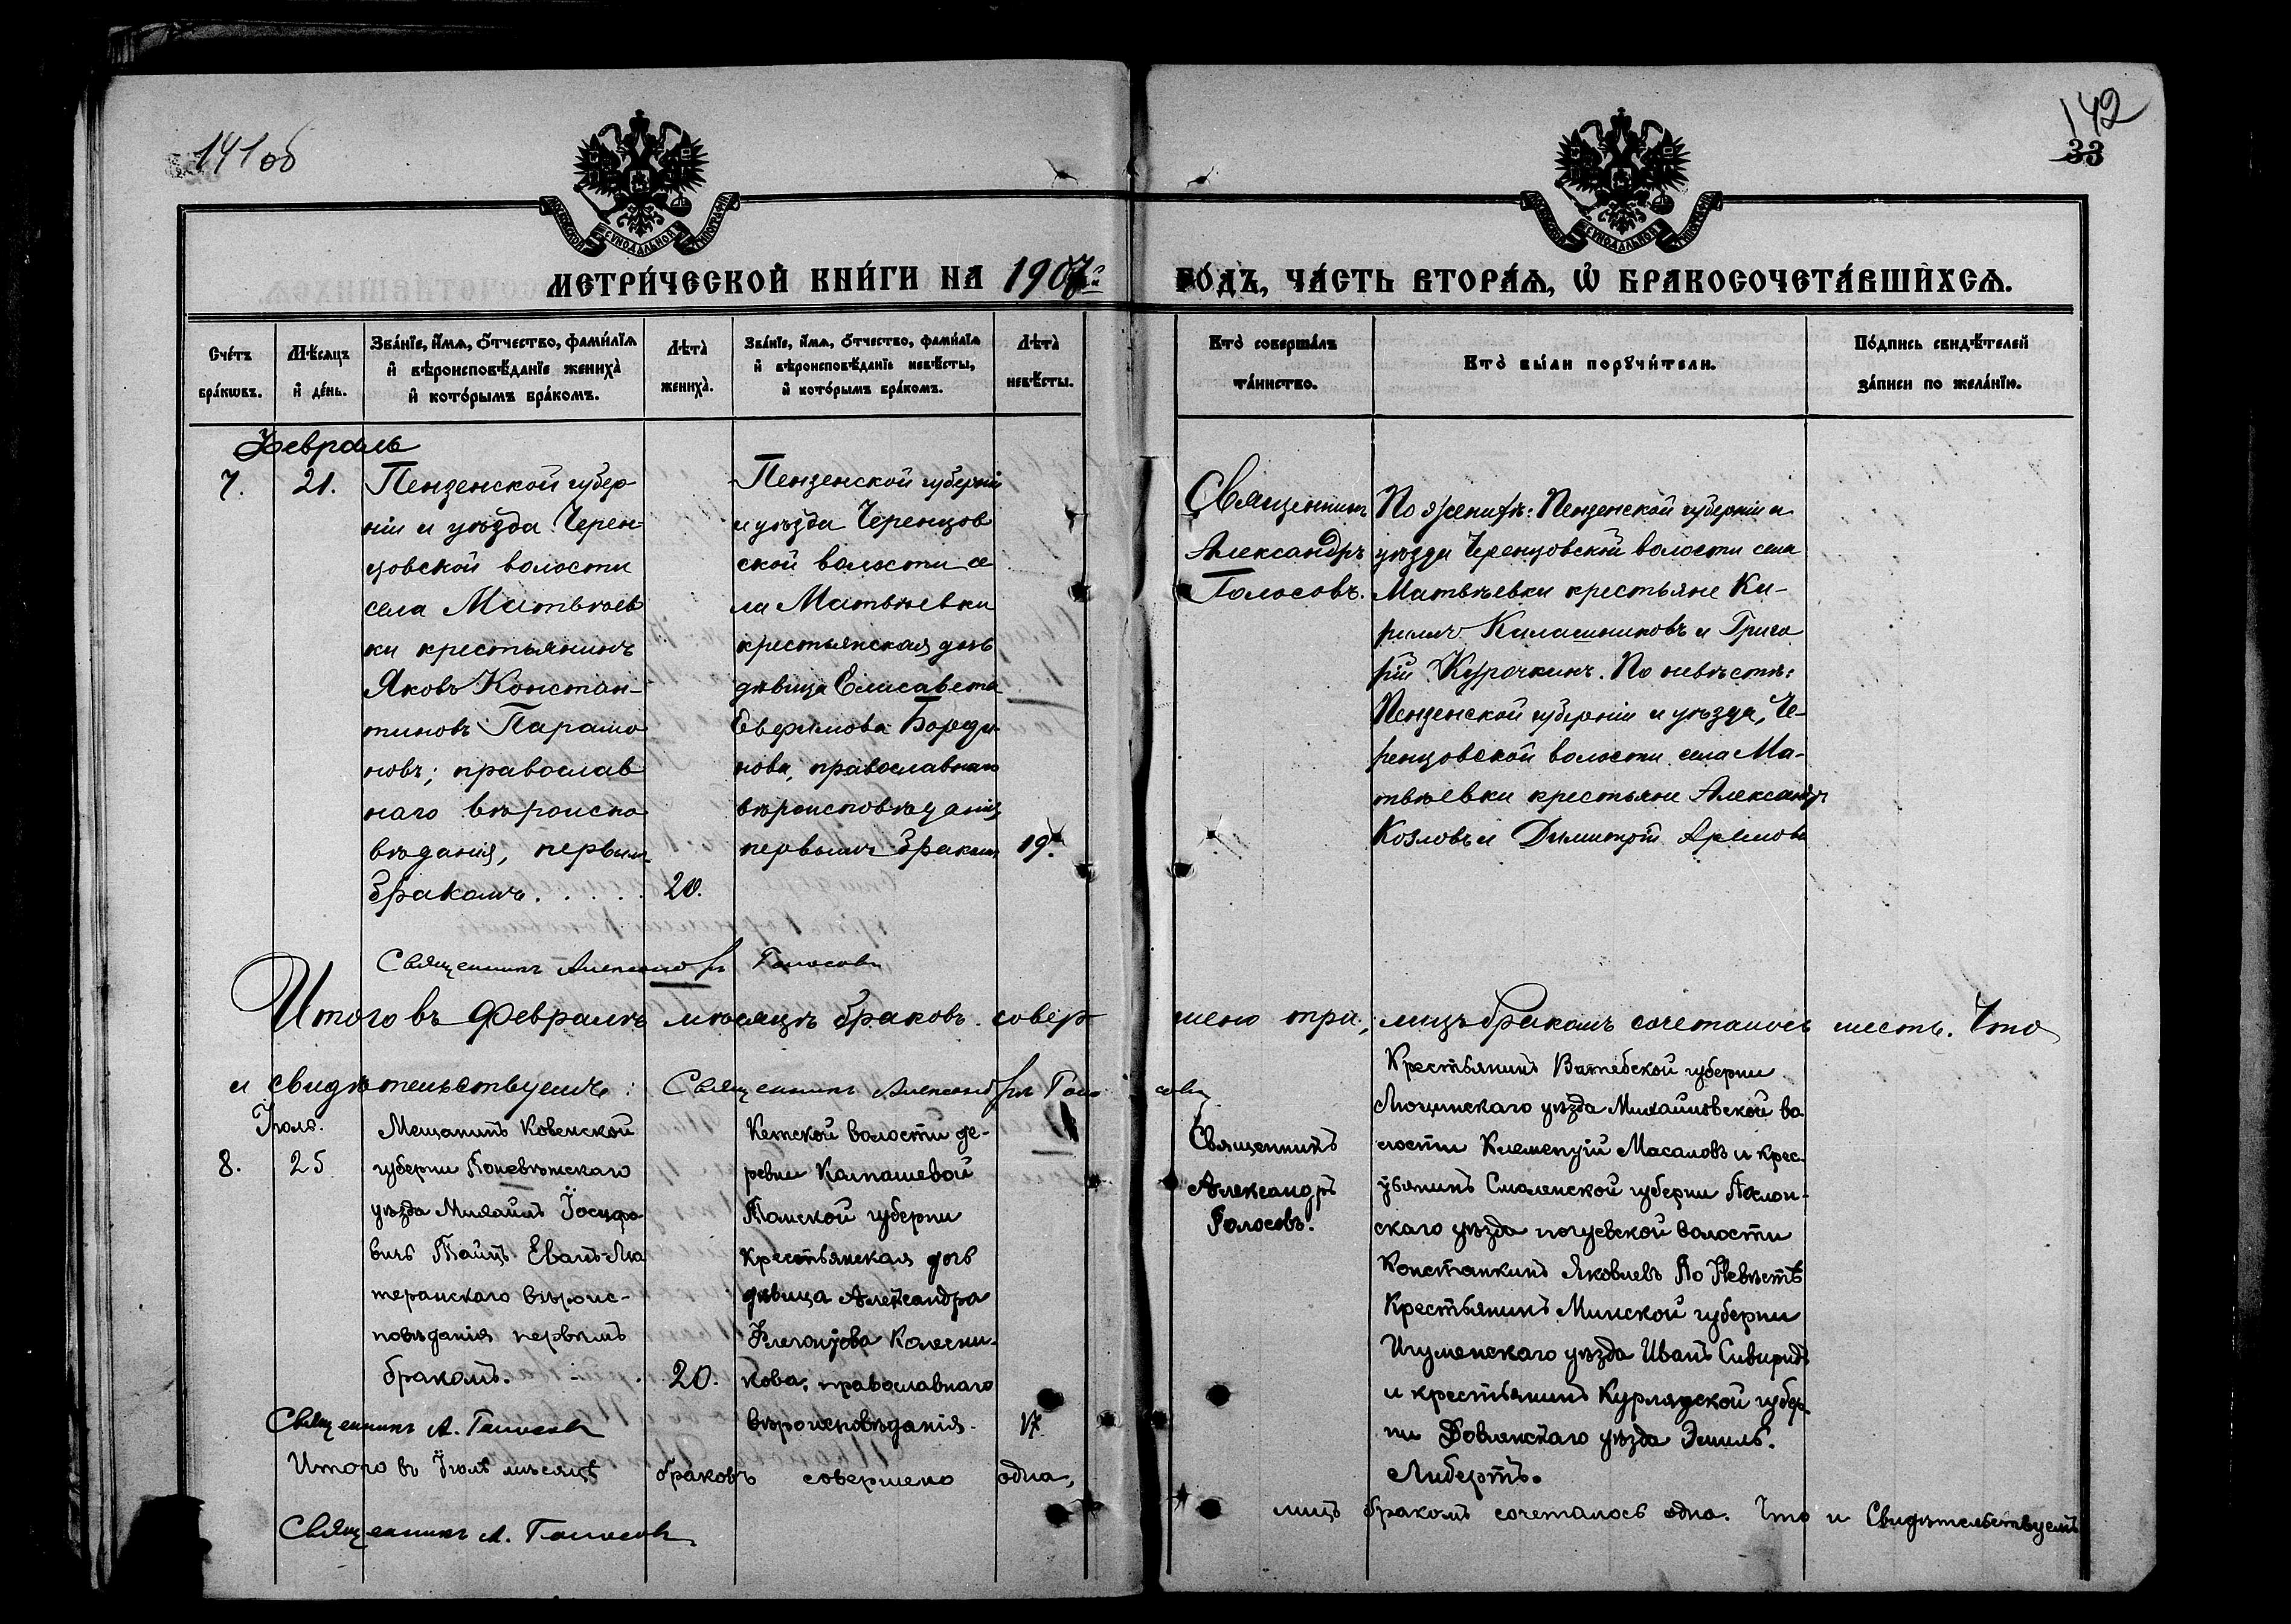 141об
142
33
МОСКОВСКОЙ СѴНОДАЛЬНОЙ ТИПОГРАФІИ
МОСКОВСКОЙ СѴНОДАЛЬНОЙ ТИПОГРАФІИ
МЕТРИ́ЧЕСКОЙ КНИ́ГИ НА 1907й
ГО́ДЪ, ЧА́СТЬ ВТОРА́Ѧ, Ѽ БРАКОСОЧЕТА́ВШИХСѦ.
Сче́тъ
бра́кѡвъ.
Мѣ́сѧцъ
и҆ де́нь.
Зва́нїе, и҆́мѧ, ѻ҆́тчество, фами́лїѧ
и҆ вѣроисповѣ́данїе жениха̀
и҆ кото́рымъ бра́комъ.
Лѣ́та̀
жениха̀.
Зва́нїе, и҆́мѧ, ѻ҆́тчество, фами́лїѧ
и҆ вѣроисповѣ́данїе невѣ́сты,
и҆ кото́рымъ бра́комъ.
Лѣ́та̀
невѣ́сты.
Кто̀ соверша́лъ
та́инство.
Кто̀ бы́ли порꙋчи́тели.
По́дпись свидѣ́телей
за́писи по жела́нїю.
Февраль
7.
21.
Пензенской губер
ніи и уѣзда Черен-
цовской волости
села Матвѣев
ки крестьянинъ
Яковъ Констан-
тиновъ Парамо
новъ; православ
наго вѣроиспо
вѣданія, первым
бракомъ. . . . .
20.
Пензенской губерніи
и уѣзда Черенцов
ской волости се
ла Матвѣевки
крестьянская дочь
дѣвица Елисавета
Евфимова Бороди
нова, православнаго
вѣроисповѣданія
первымъ бракомъ
19.
Священникъ
Александръ
Голосовъ.
По женихѣ: Пензенской губерніи и
уѣзда Черенцовской волости села
Матвѣевки крестьяне Ки-
риллъ Калашниковъ и Григо
рій Курочкинъ. По невѣстѣ:
Пензенской губерніи и уѣзда, Че-
ренцовской волости села Ма-
твѣевки крестьяне Александръ
Козловъ и Димитрій
Священникъ Александръ Голосовъ
Итого въ Февралѣ мѣсяцѣ браковъ совер
шено три, лицъ бракомъ сочеталось шесть. Что
и свидѣтельствуемъ: Священникъ Александръ Голо
совъ
Іюля.
8.
25
Мещанинъ Ковенской
губерни Поневѣжскаго
уѣзда Михаилъ Іосифо
вичъ Тайцъ Еванъ-Лю
теранскаго вѣроис-
повѣданія первымъ
бракомъ.
20.
Кетской волости де-
ревни Колпашевой
Томской губерни
Крестьянская дочь
дѣвица Александра
Флегонтова Колесни-
кова, православнаго
вѣроисповѣданія.
17.
Священникъ
Александръ
Голосовъ.
Крестьянинъ Витебской губерни
Люцинскаго уѣзда Михайловской во
лости Клементій Масаловъ и крес-
тьянинъ Смоленской губерни
скаго уѣзда волости
Константинъ Яковлевъ По Невѣстѣ
Крестьянинъ Минской губерни
Игуменскаго уѣзда Иванъ Свиридъ
и крестьянинъ Курляндской губер
ни уѣзда Эмиль.
Либертъ.
Священникъ А. Голосовъ
Итого въ Іюлѣ мѣсяцѣ браковъ совершено одна,
лицъ бракомъ сочеталось одна. Что и Свидѣтельствуемъ
Священникъ А. Голосовъ